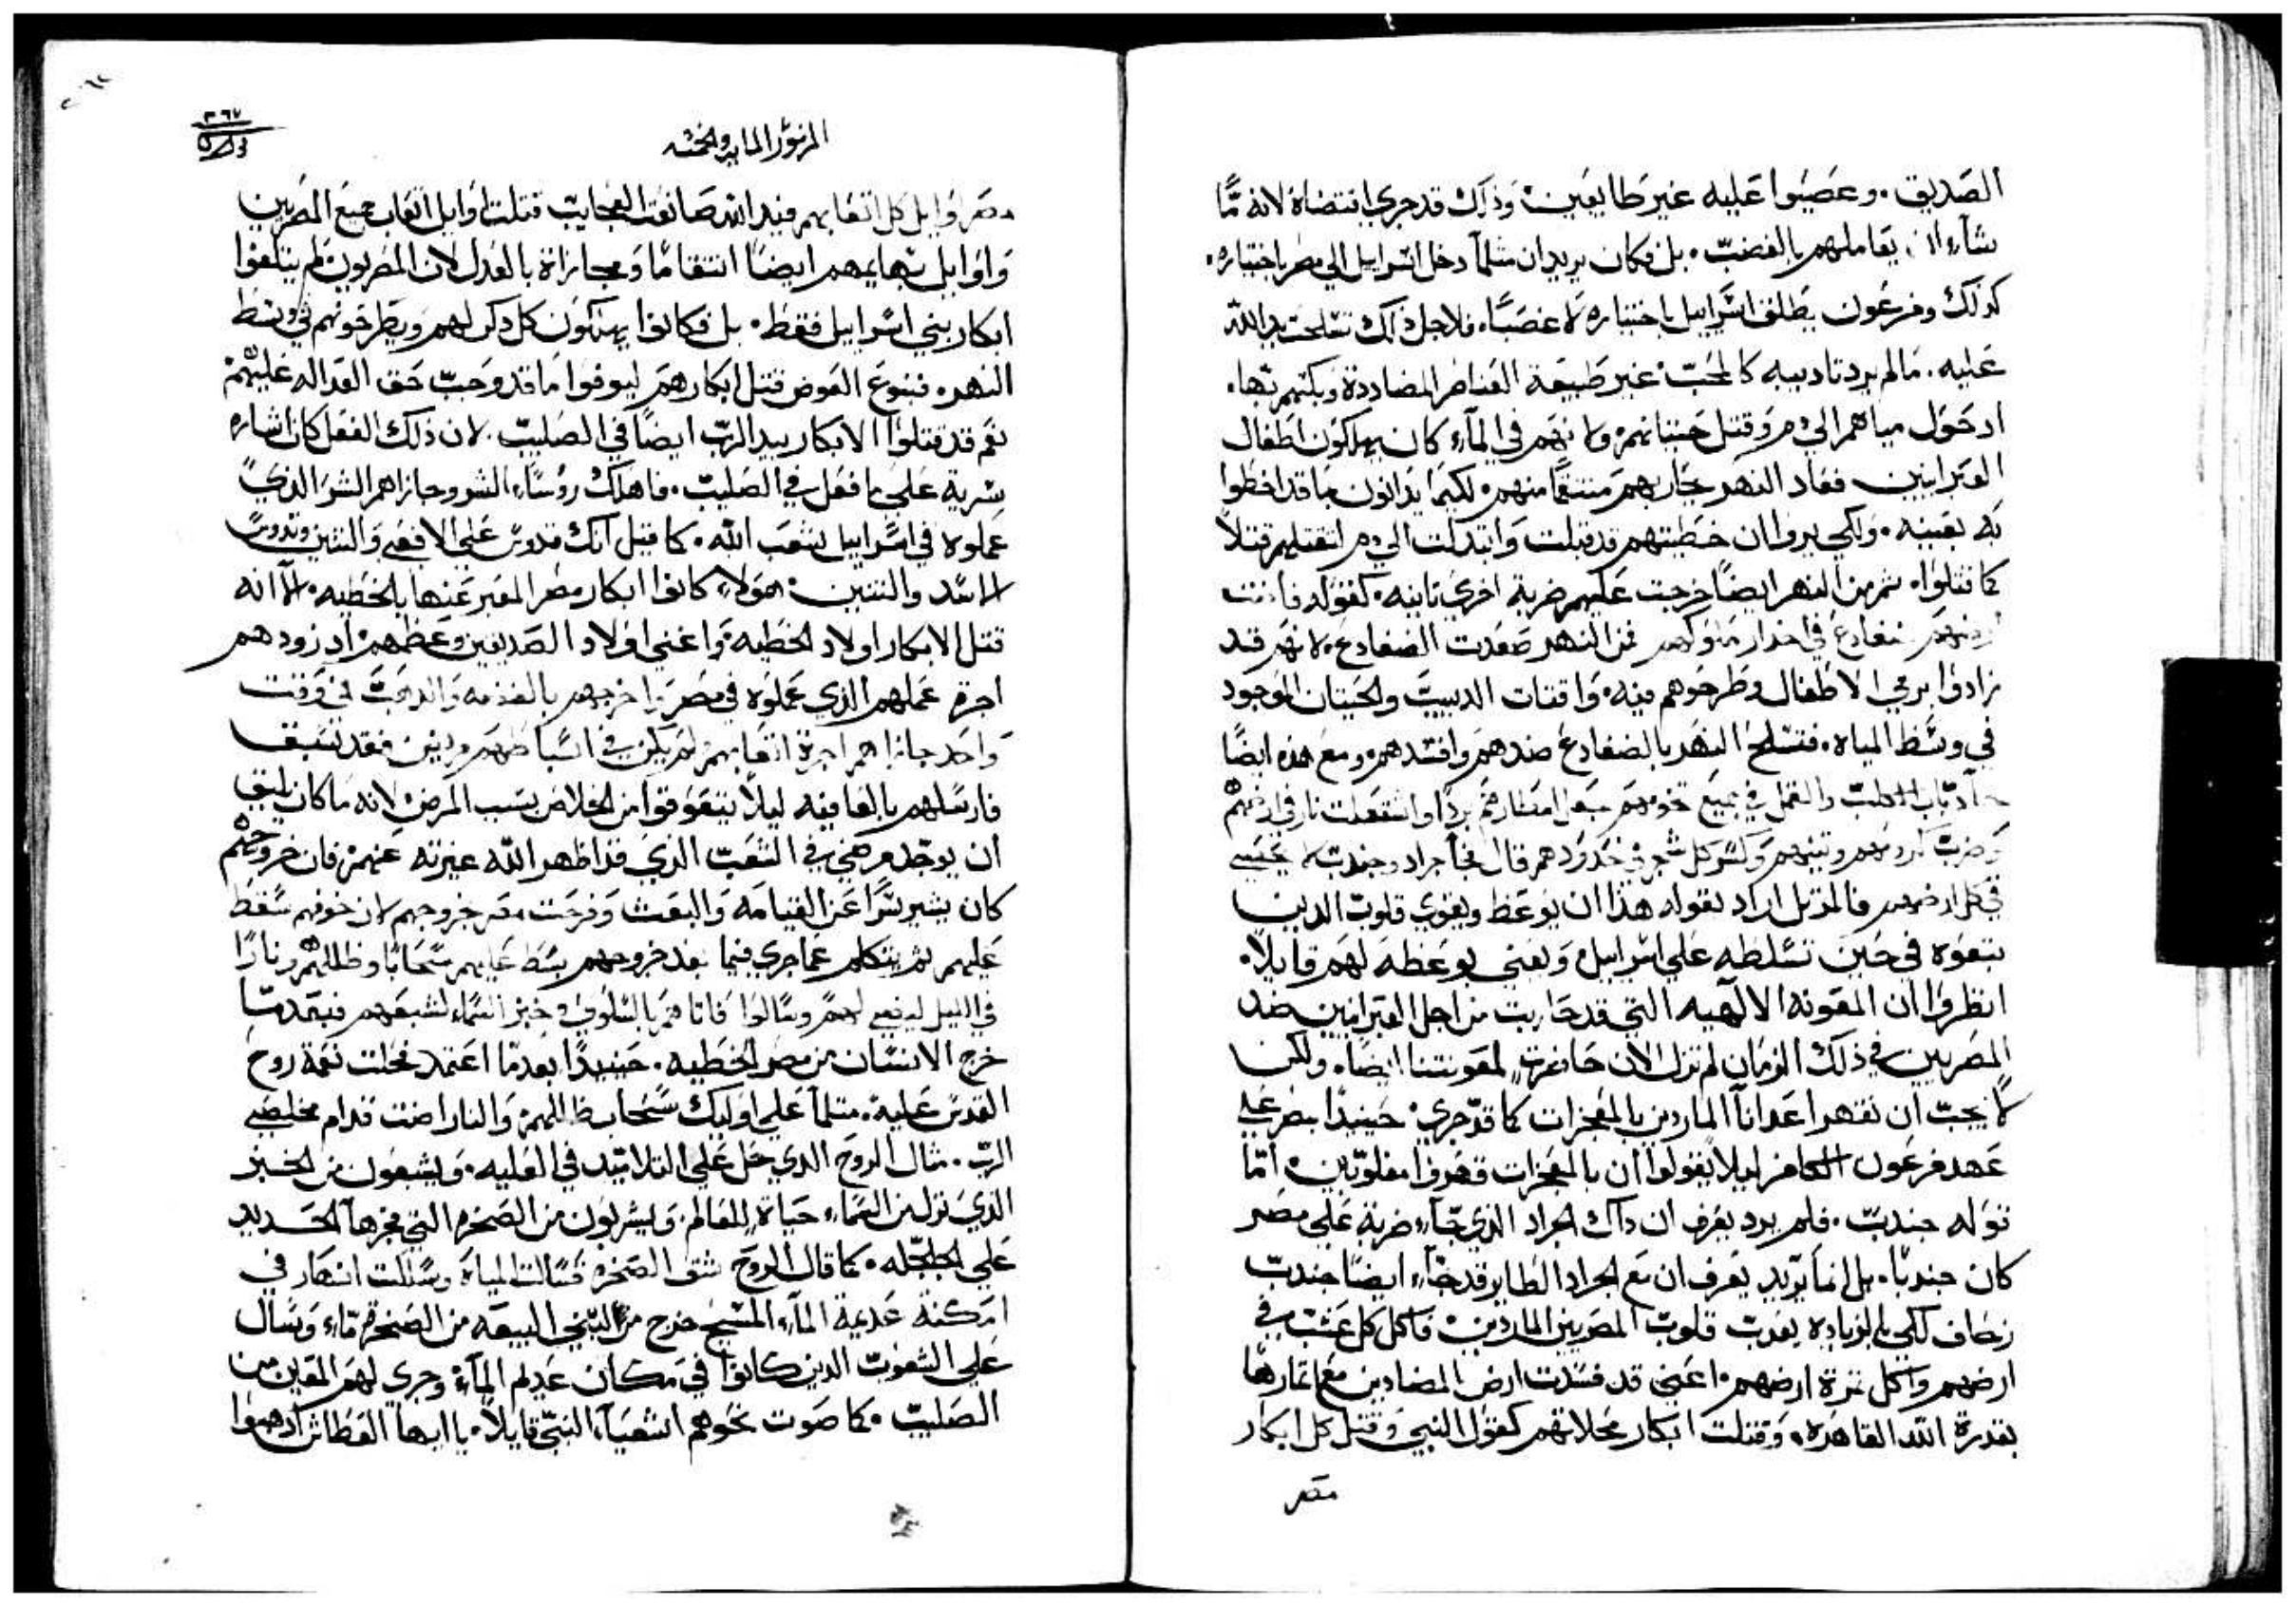 الصديق. وعصيوا عليه غير طايعين وذلك قد جري اقتضاة لانه مَّا
شآء ان يعاملهم بالغضب. بل فكان يريد ان مثلمآ دخل اسراييل الي مصر باختياره.
كذلك وفرعون يطلق اسراييل باختياره لا غصبًا. فلاجل ذلك تسلحت يد الله
عليه. مالم يرد تاديبه كالمحب غير طبيعة العناصر المضاددة وبكتهم بها.
اذ حول مياههم الي دم وقتل حيتانهم و في المآء كان يهلكون اطفال
العبرانيين فعاد النهر يحاربهم منتقمًا منهم لكيما يدانون بما قد اخطوا
به بعينه. ولكي يروا ان خطيتهم قد قبلت وابتدلت الي دم لتقتلهم قتلاً
كما قتلوا. ثم من النهر ايضًا خرجت عليهم ضربة اخري ثانيه. كقوله فافنت
ارضهم ضفادع في اخدار ملوكهم فمن النهر صعدت الضفادع لانهم قد
زادوا برمي الاطفال وطرحوهم فيه. واقتات الدبيب والحيتان الموجود
في وسط المياه. فتسلح النهر بالضفادع ضدهم وافسدهم. ومع هذه ايضًا
ذباب الكلب والقمل في جميع تخومهم جعل امطارهم بردًا واشتعلت نار في ارضهم
وضرب كرومهم وتينهم وكسر كل شجر في حدودهم قال فجآ جراد وجندب لا يحصي
في كل ارضهم فالمرتل اراد بقوله هذا ان يوعظ ويقوي قلوب الدين
بتقوه في حين تسلطه علي اسراييل ويعني يوعظه لهم قايلاً.
انظروا ان المعونه الالآهيه التي قد حاربت من اجل العبرانيين ضد
المصريين في ذلك الزمان لم تزل الان حاضرة لمعونتنا ايضًا. ولكن
لا يجب ان نقهر اعدانآ الماردين بالمعجزات كما قد جري حينيدًا بمصر علي
عهد فرعون الكافر ليلا يقولوا ان بالمعجزات قهروا مغلوبين امّا
قوله جندب. فلم يرد يعرف ان داك الجراد الذي جآء ضربة علي مصر
كان جندبًا. بل انما يريد يعرف ان مع الجراد الطاير قد جآء ايضًا جندب
زحاف لكي بالزياده يعدب قلوب المصريين الماردين فاكل كل عشب في
ارضهم واكل ثمرة ارضهم اعني قد فسدت ارض المضادين مع اثمارها
بقدرة الله القاهره. وقتلت ابكار محلاتهم كقول النبي وقتل كل ابكار
مصر
٣٦٧
المزمور المايه والخمسه
مصر اوايل كل اتعابهم فيد الله صانعت العجايب قتلت اوايل اتعاب جميع المصريين
واوايل بهايمهم ايضًا انتقامًا ومجازاة بالعدل لان المصريون لم يتلفوا
ابكار بني اسراييل فقط. بل فكانوا يهلكون كل ذكر لهم ويطرحونهم في وسط
النهر. فبنوع العوض قتل ابكارهم ليوفوا ما قد وجب حق العداله عليهم
نعم قد قتلوا الابكار بيد الرب ايضًا في الصليب. لان ذلك الفعل كان اشاره
سرية علي ما فعل في الصليب. فاهلك روسآء الشر وجازاهم الشر الذي
عملوه في اسراييل شعب الله. كما قيل انك تدوس علي الافعي والتنين وتدوس
الاسد والتنين. هولآء كانوا ابكار مصر المعبر عنها بالخطيه. الآ انه
قتل الابكار اولاد الخطيه واغني اولاد الصديقين وعظمهم اذ زودهم
اجرة عملهم الذي عملوه في مصر واخرجهم بالفضه والدهب في وقت
واحد جازاهم اجرة اتعابهم لم يكن في اسباطهم مريض فقد تسبق
فارسلهم بالعافيه ليلاً يتعوقوا من الخلاص بسبب المرض لانه ما كان يليق
ان يوجد مرضي في الشعب الذي قد اظهر الله غيرته عنهم فان خروجهم
كان يشير سرًا عن القيامه والبعث وفرحت مصر بخروجهم لان خوفهم سقط
عليهم ثم يتكلم عما جري فيما بعد خروجهم بسط عليهم سحابًا وظللهم ونارًا
في الليل ليضي لهم وسالوا فاتاهم بالسلوي وخبز السماء لشبعهم فبعد ما
خرج الانسان من مصر الخطيه. حينيدًا بعد ما اعتمد فحلت نعمة روح
القدس عليه. مثلمآ علي اوليك سحاب ظللهم والنار اضت قدام مخلصي
الرب. مثال الروح الذي حل علي التلاميد في العليه. ويشبعون من الخبز
الذي نزل من السماء حياة للعالم ويشربون من الصخره التي فجرهآ الحديد
علي الجلجله. كما قال الروح شق الصخره فسالت المياة وسللت انهار في
امكنة عديمة المآء المسيح خرج من البيعه من الصخرة مآء وسال
علي الشعوب الدين كانوا في مكان عديم المآء وجري لهم المعين من
الصليب. كما صوت نحوهم اشعيآء النبي قايلاً. يا ايها العطاش ادهبوا